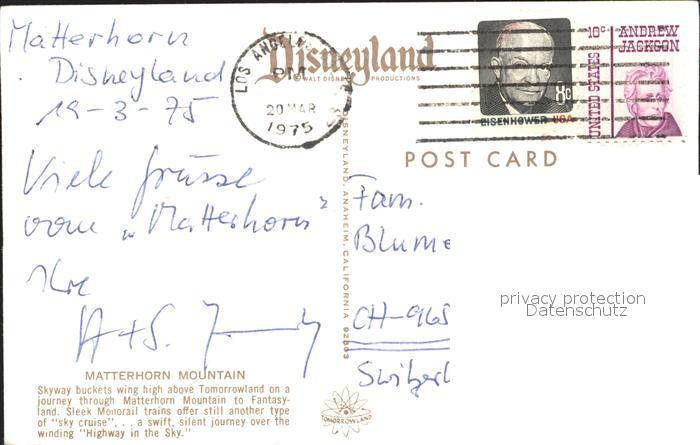 Matterhorn
Disneyland
19-3-75
Viele grüsse
vom "Matterhorn"
Ihre
H+S.
Disneyland
© WALT DISNEY PRODUCTIONS
LOS ANGELES
PM
20 MAR
1975
8c
EISENHOWER USA
10c ANDREW
JACKSON
UNITED STATES
POST CARD
DISNEYLAND, ANAHEIM, CALIFORNIA 92803
Fam.
Blume
CH-965
Switzerl
privacy protection
Datenschutz
MATTERHORN MOUNTAIN
Skyway buckets wing high above Tomorrowland on a
journey through Matterhorn Mountain to Fantasy-
land. Sleek Monorail trains offer still another type
of "sky cruise", . . a swift, silent journey over the
winding "Highway in the Sky."
TOMORROWLAND